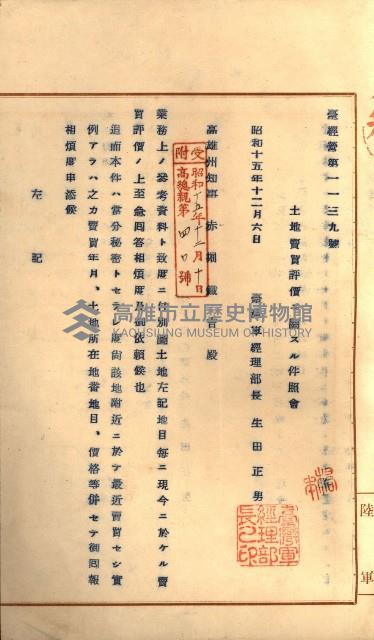 臺經營第一一三九號
土地賣買評價ニ關スル件照會
昭和十五年十二月六日
臺灣軍經理部長 生田正男
高雄州知事 赤堀鐵吉殿
受附
昭和十五年十二月十日
高總親第四〇號
業務上ノ參考資料ト致度ニ付別圖土地左記地目每ニ現今ニ於ケル賣
買評價ノ上至急回答相煩度及御依賴候也
追而本件ハ當分秘密トセラレ度尚該地附近ニ於テ最近賣買セシ實
例アラハ之カ賣買年月、土地所在地番地目、價格等併セテ御回報
相煩度申添候
左記
臺灣軍經理部長之印
陸軍
高雄市立歷史博物館
KAOHSIUNG MUSEUM OF HISTORY